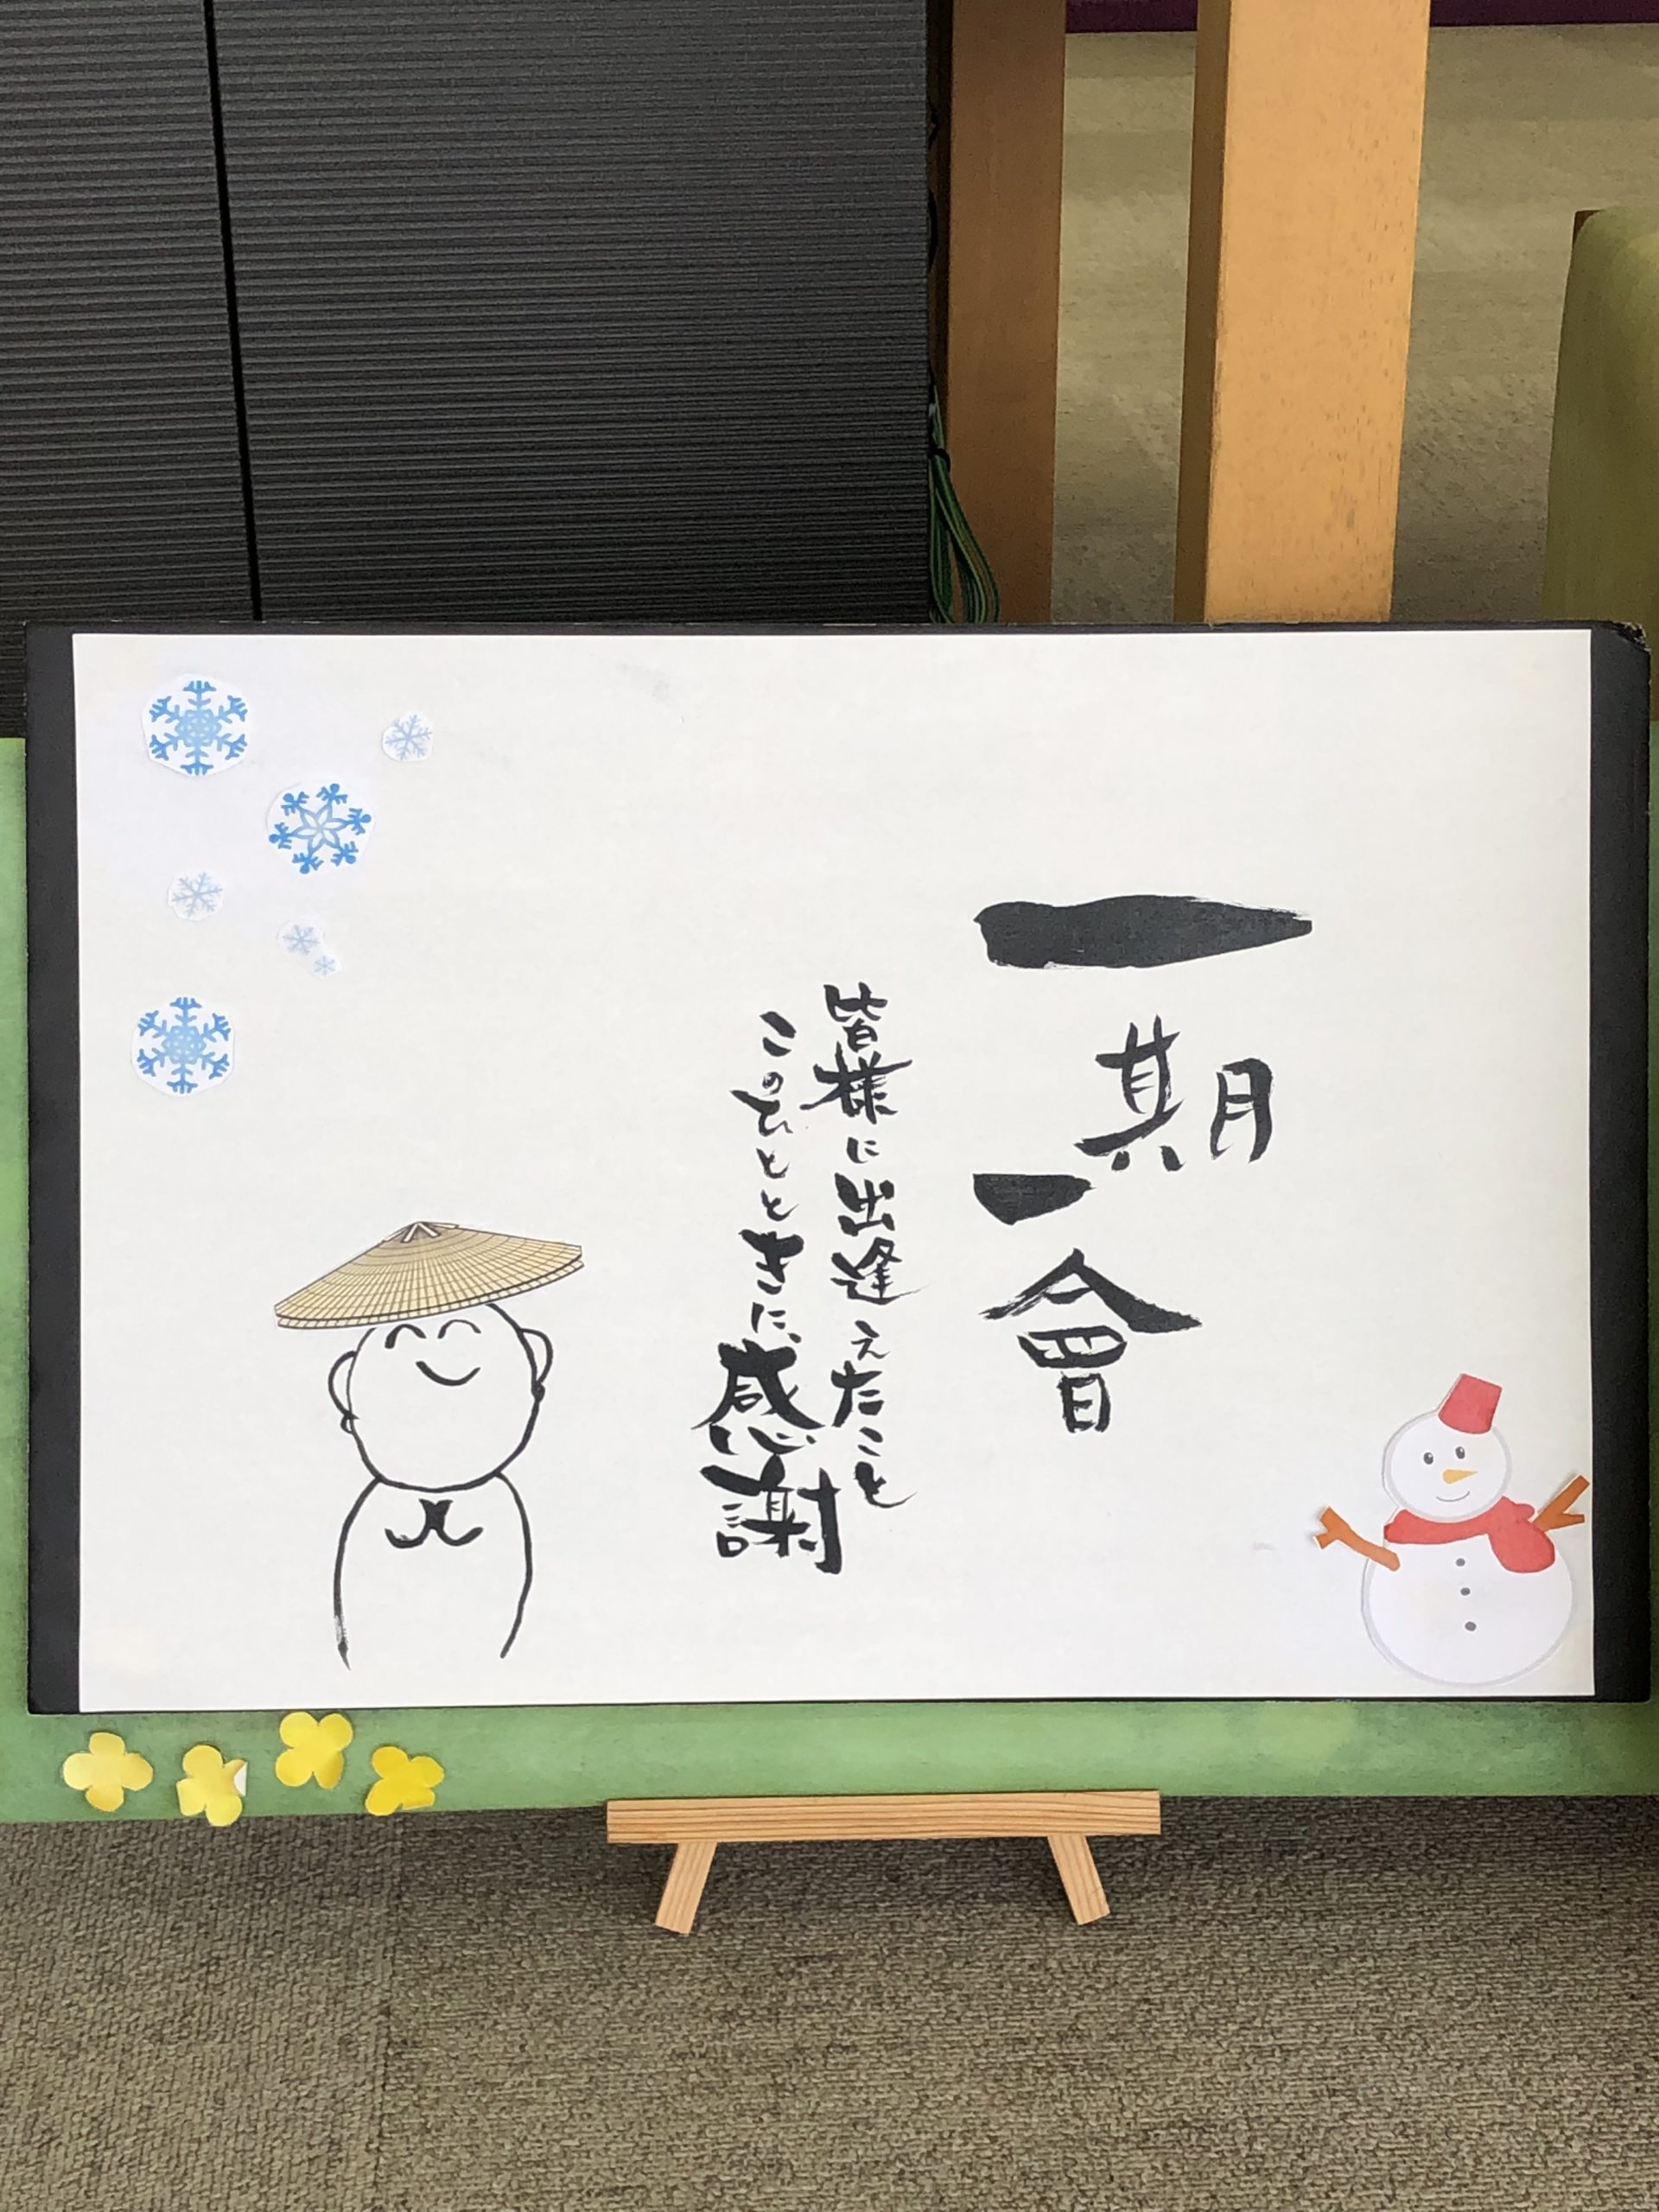 一期一會
皆様に出逢えたこと
このひとときに、感謝